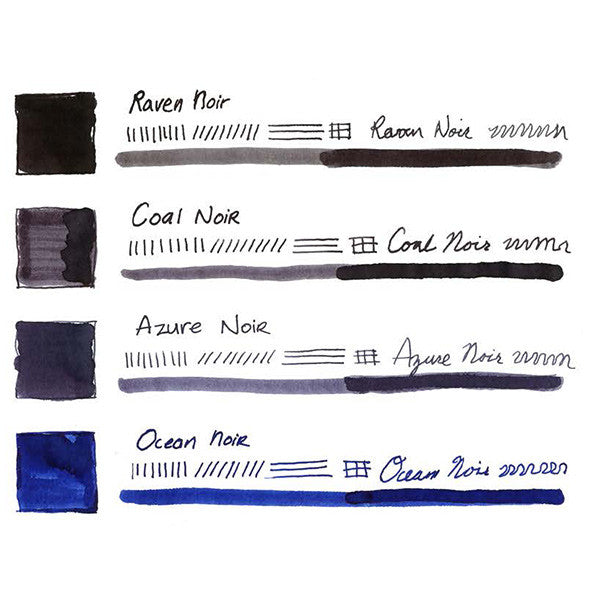 Raven Noir
Raven Noir
Coal Noir
Coal Noir
Azure Noir
Azure Noir
Ocean Noir
Ocean Noir